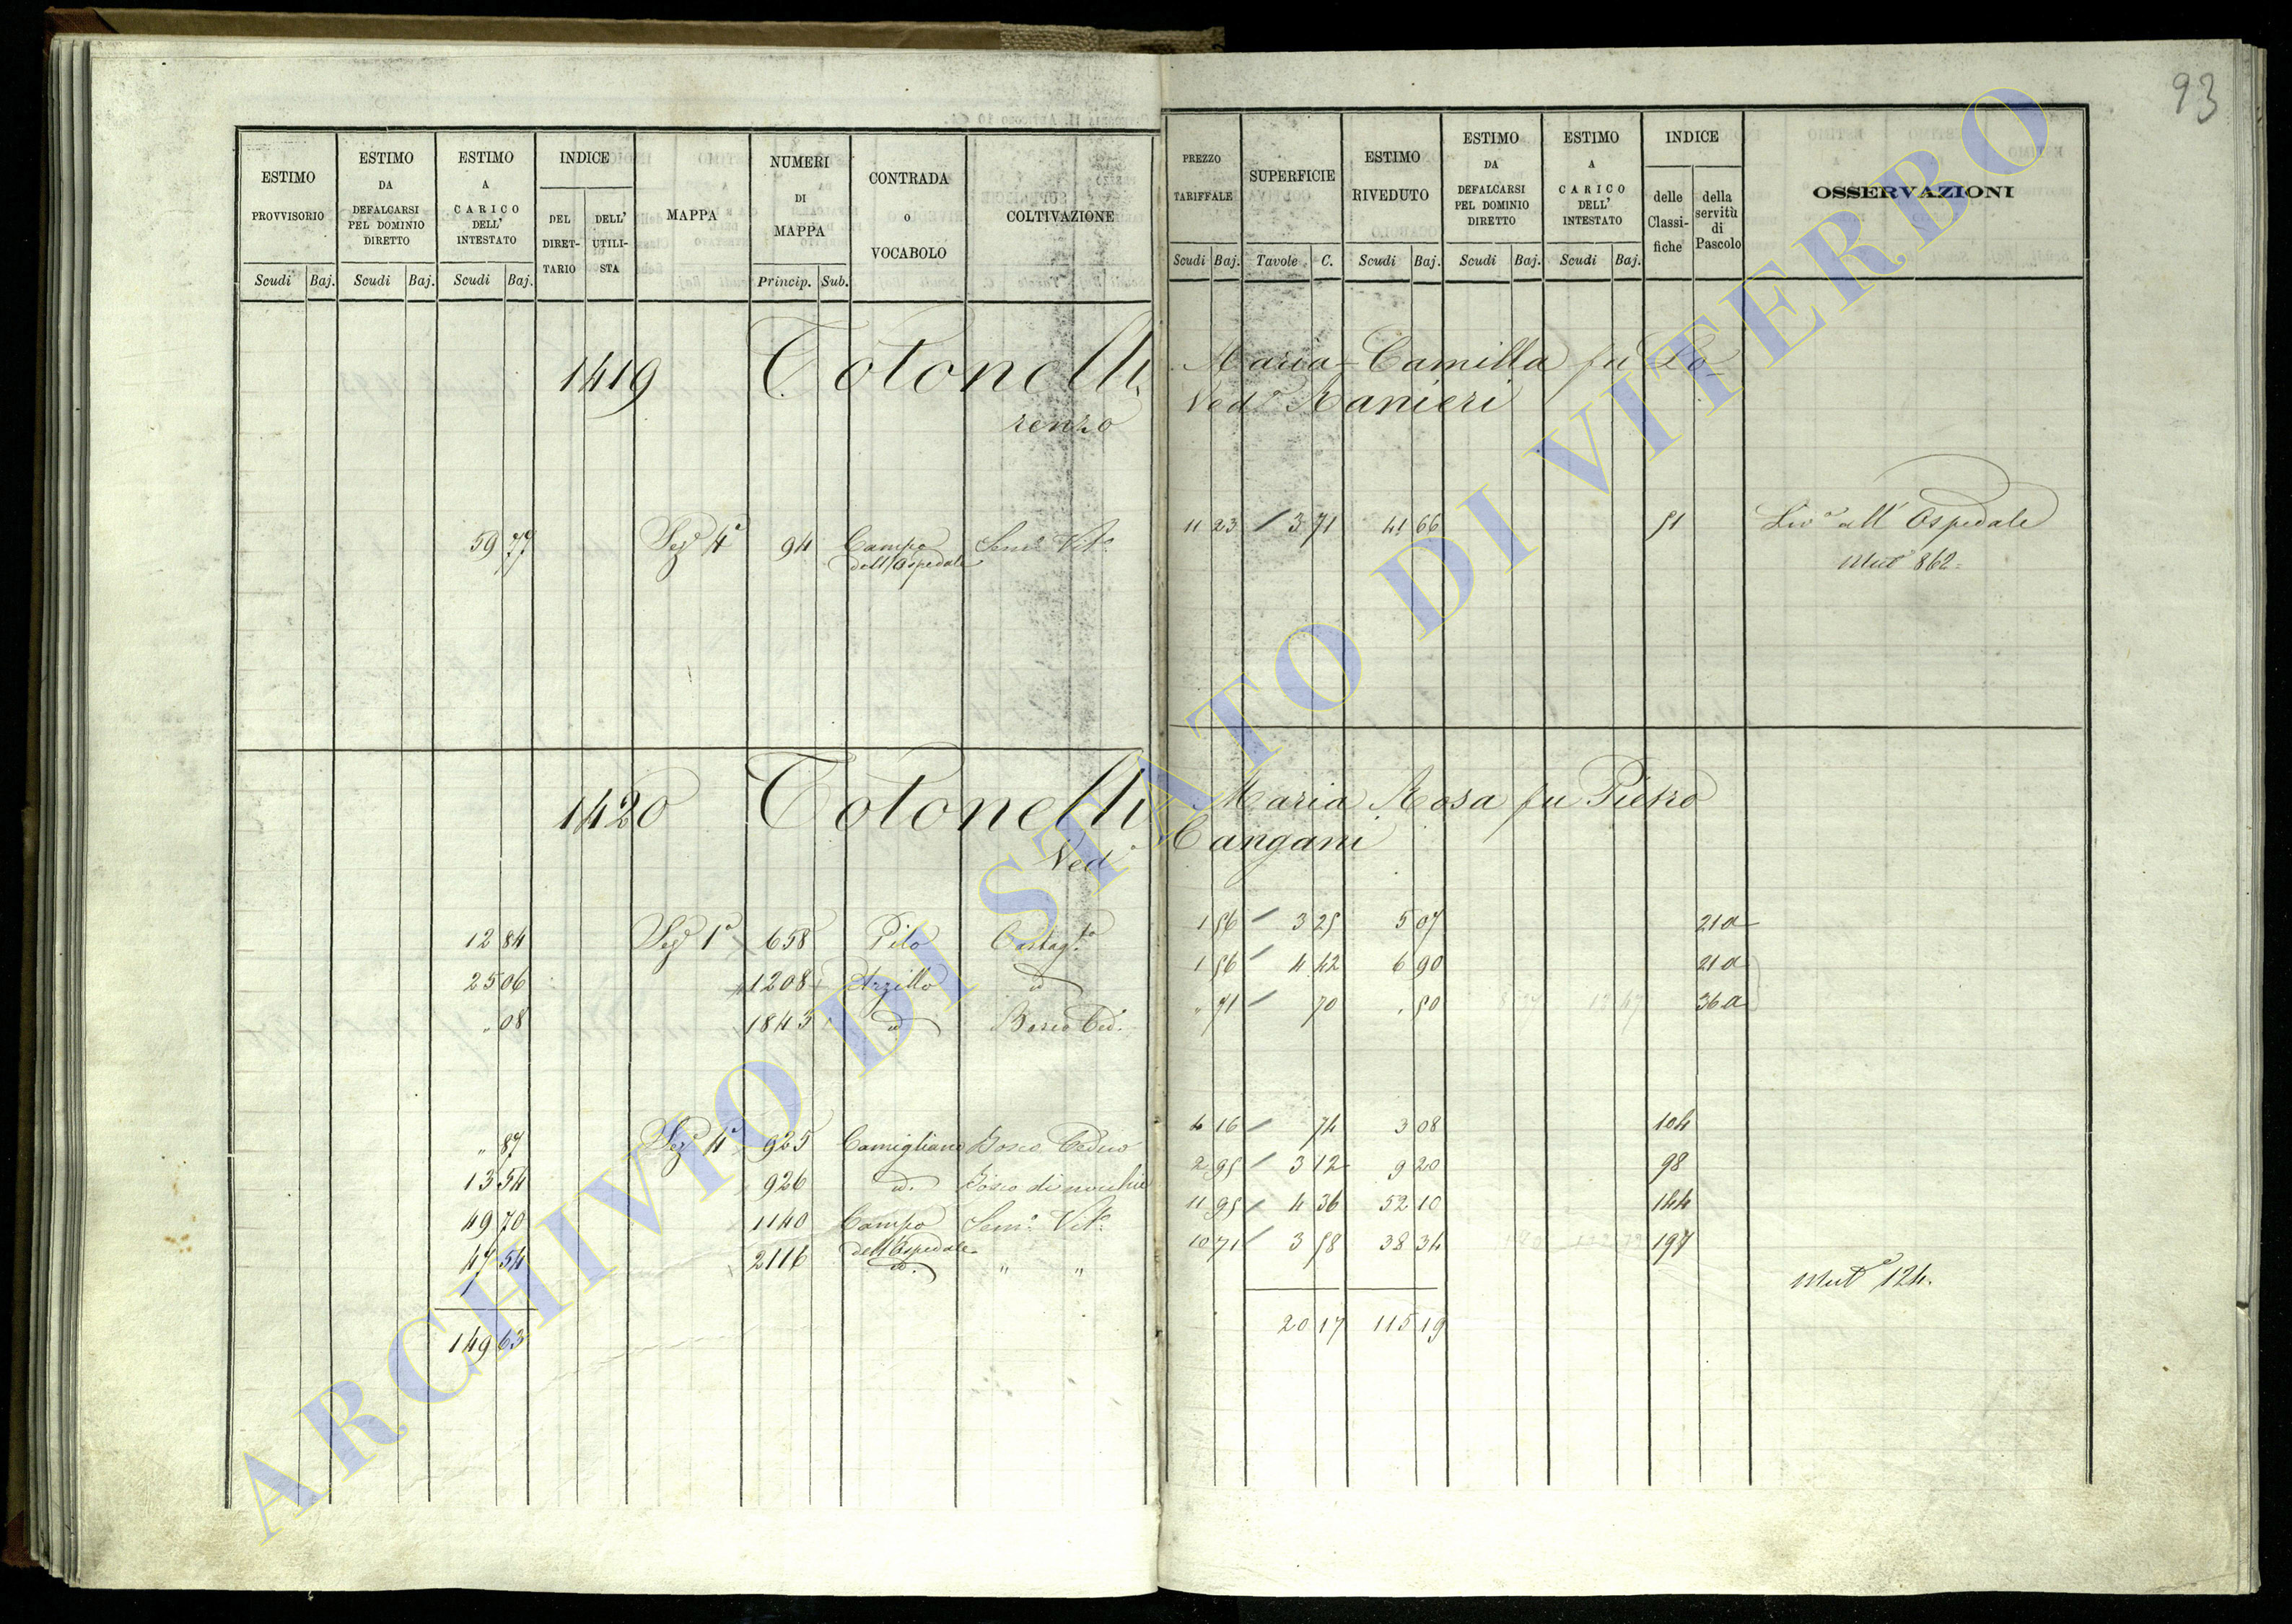 93
ESTIMO PROVVISORIO
ESTIMO DA DEFALCARSI PEL DOMINIO DIRETTO
ESTIMO A CARICO DELL' INTESTATO
INDICE
DEL DIRETTARIO
DELL' UTILISTA
MAPPA
NUMERI DI MAPPA
CONTRADA O VOCABOLO
COLTIVAZIONE
PREZZO TARIFFALE
SUPERFICIE
ESTIMO RIVEDUTO
ESTIMO DA DEFALCARSI PEL DOMINIO DIRETTO
ESTIMO A CARICO DELL' INTESTATO
INDICE
delle Classifiche
della servitù di Pascolo
OSSERVAZIONI
Scudi Baj. Scudi Baj. Scudi Baj. Princip. Sub. Scudi Baj. Tavole C. Scudi Baj. Scudi Baj. Scudi Baj.
1419 Totonelli Maria Camilla fu Lo-
renzo Ved.a Ranieri
59 77 Sez.e 4a 94 Campo dell'Ospedale Sem.o Vit.o 11 23 3 71 41 66 51 Liv.o all' Ospedale
Mut.a 862
1420 Totonelli Maria Rosa fu Pietro
Ved.a Cangani
12 84 Sez.e 1a 658 Pilo Castag.to 1 56 3 25 5 07 21a
25 06 1208 Arzillo id 1 56 4 42 6 90 21a
" 08 1843 id Bosco Ced.o " 71 70 . 50 36a
" 87 Sez.e 4a 925 Camigliano Bosco Ceduo 4 16 74 3 08 104
13 54 926 id. Bosco di nocchie 2 95 3 12 9 20 98
49 70 1140 Campo dell'Ospedale Sem.o Vit.o 11 95 4 36 52 10 144
47 54 2116 id. " " 10 71 3 58 38 34 197
Mut.a 124.
149 63 20 17 115 19
ARCHIVIO DI STATO DI VITERBO